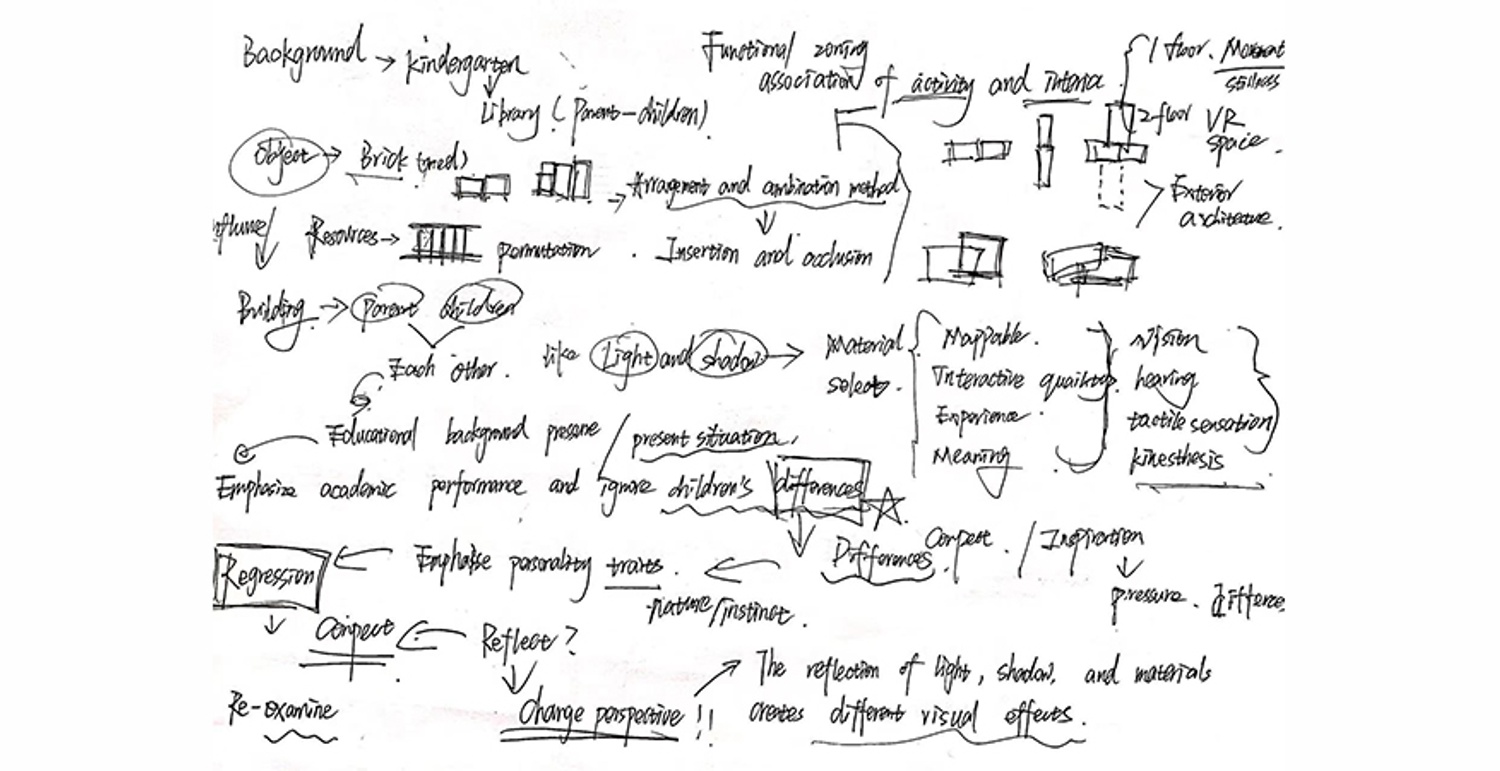 Background → kindergarten
Library (Parent-children)
Functional zoning
association of activity and interior
1 floor. Moment
stillness
2-floor VR
space.
Exterior
architeture.
Object → Brick (med)
→ Arragement and ambination method
Resources → permutation . Insertion and occlusion
Building → parent children
Each other. like Light and shadow →
Material
select.
Mappable.
Interactive
Experience.
Meaning
Vision
hearing
tactile sensation
kinesthesis
Educational background pressure / present situation.
Emphasize academic performance and ignore children's differences
Differences / Inspiration
pressure.
Regression ← Emphasise personality traits.
nature/instinct.
← Reflect?
Re-examine
Change perspective !!
The reflection of light, shadow, and materials
creates different visual effects.